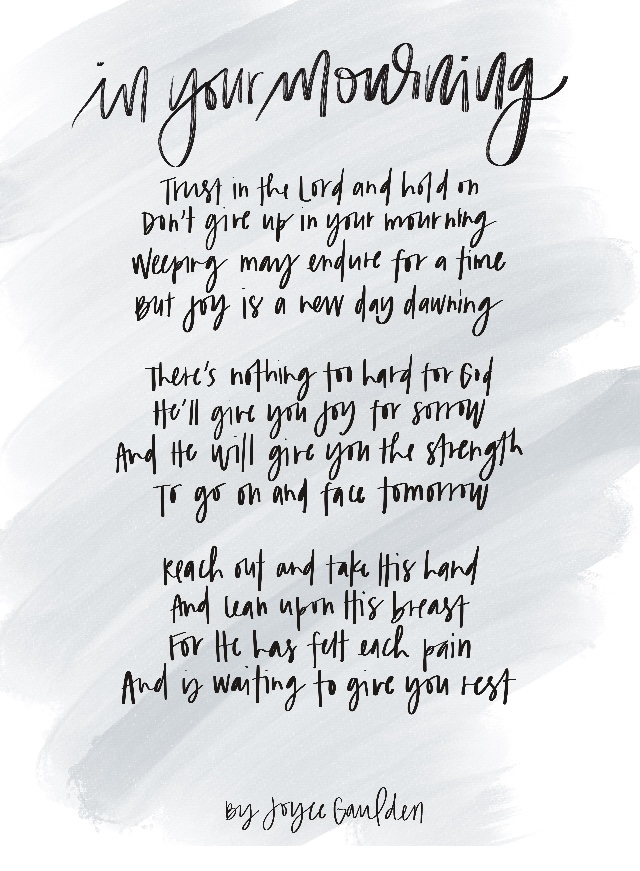 in your mourning
Trust in the Lord and hold on
Don't give up in your mourning
Weeping may endure for a time
But Joy is a new day dawning
There's nothing too hard for God
He'll give you Joy for sorrow
And He will give you the strength
To go on and face tomorrow
Reach out and take His hand
And lean upon His breast
For He has felt each pain
And is waiting to give you rest
By Joyce Gaulden